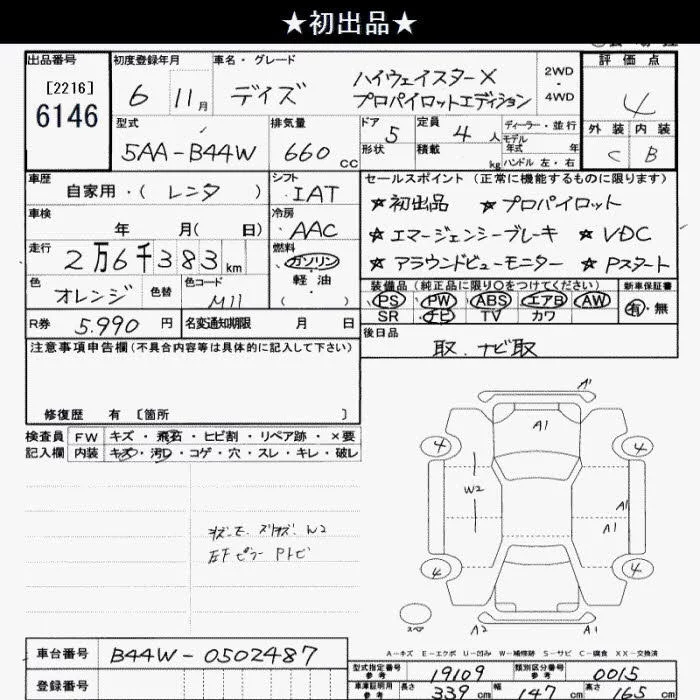 ★初出品★
出品番号 初度登録年月 車名・グレード 評価点
[2216]
6146
6 11月 デイズ ハイウェイスターX プロパイロットエディション 2WD・4WD 4
型式 排気量 ドア 5 定員 4人 ディーラー・並行 外装 内装
5AA-B44W 660cc 形状 積載 kg モデル年式 年 C B
ハンドル 左・右
車歴 シフト セールスポイント(正常に機能するものに限ります)
自家用・(レンタ) IAT ★初出品 ★プロパイロット
車検 冷房
年 月( 日) AAC ★エマージェンシーブレーキ ★VDC
走行 燃料
2万6千383km ガソリン ★アラウンドビューモニター ★Pスタート
軽油
( )
色 色替 色コード 装備品(純正品に限り○をつけてください) 新車保証書
オレンジ M11 PS PW ABS エアB AW 有・無
SR ナビ TV カワ
R券 5.990円 名変通知期限 月 日 後日品
注意事項申告欄(不具合内容等は具体的に記入して下さい) 取.ナビ取
修復歴 有 [箇所 ]
検査員 FW キズ・飛石・ヒビ割・リペア跡・×要
記入欄 内装 キズ・汚レ・コゲ・穴・スレ・キレ・破レ
A' A1
4 4
W2 A1
A1
W2
左F ピラー Pトビ
4 4
スペア A2 A1
A-キズ E-エクボ U-凹み W-補修跡 S-サビ C-腐食 XX-交換済
車台番号 B44W-0502487
型式指定番号 参考 19109 類別区分番号 参考 0015
登録番号 車庫証明用 参考 長さ 339cm 幅 147cm 高さ 165cm